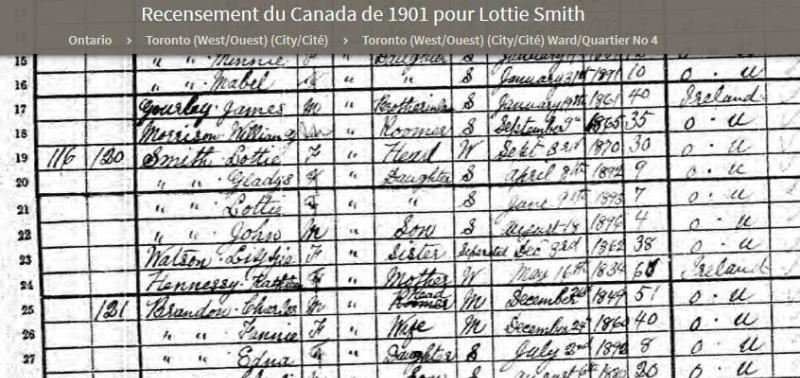 Recensement du Canada de 1901 pour Lottie Smith
Ontario > Toronto (West/Ouest) (City/Cité) > Toronto (West/Ouest) (City/Cité) Ward/Quartier No 4
15 " " Minnie F " Daughter S
16 " " Mabel F " " S January 31st 1891 10 o. u
17 Gourlay James M " S 1861 40 Ireland
18 Morrison William " Roomer S September 9th 1865 35 o. u
19 116 120 Smith Lottie F " Head W Sept 3rd 1870 30 o. u
20 " " Gladys F " Daughter S April 8th 9 o. u
21 " " Lottie F " " S June 7 o. u
22 " " John M " Son S August 18 1896 4 o. u
23 Watson F " Sister Separated Dec 3rd 1862 38 o. u
24 Hennessy F " Mother W May 16th 1834 Ireland
25 121 Brandon Charles M " Head Roomer M December 1849 51 o. u
26 " " Fannie F " Wife M December 1860 40 o. u
27 " " Edna F " Daughter S July 2nd 1892 8 o. u
20 o. u